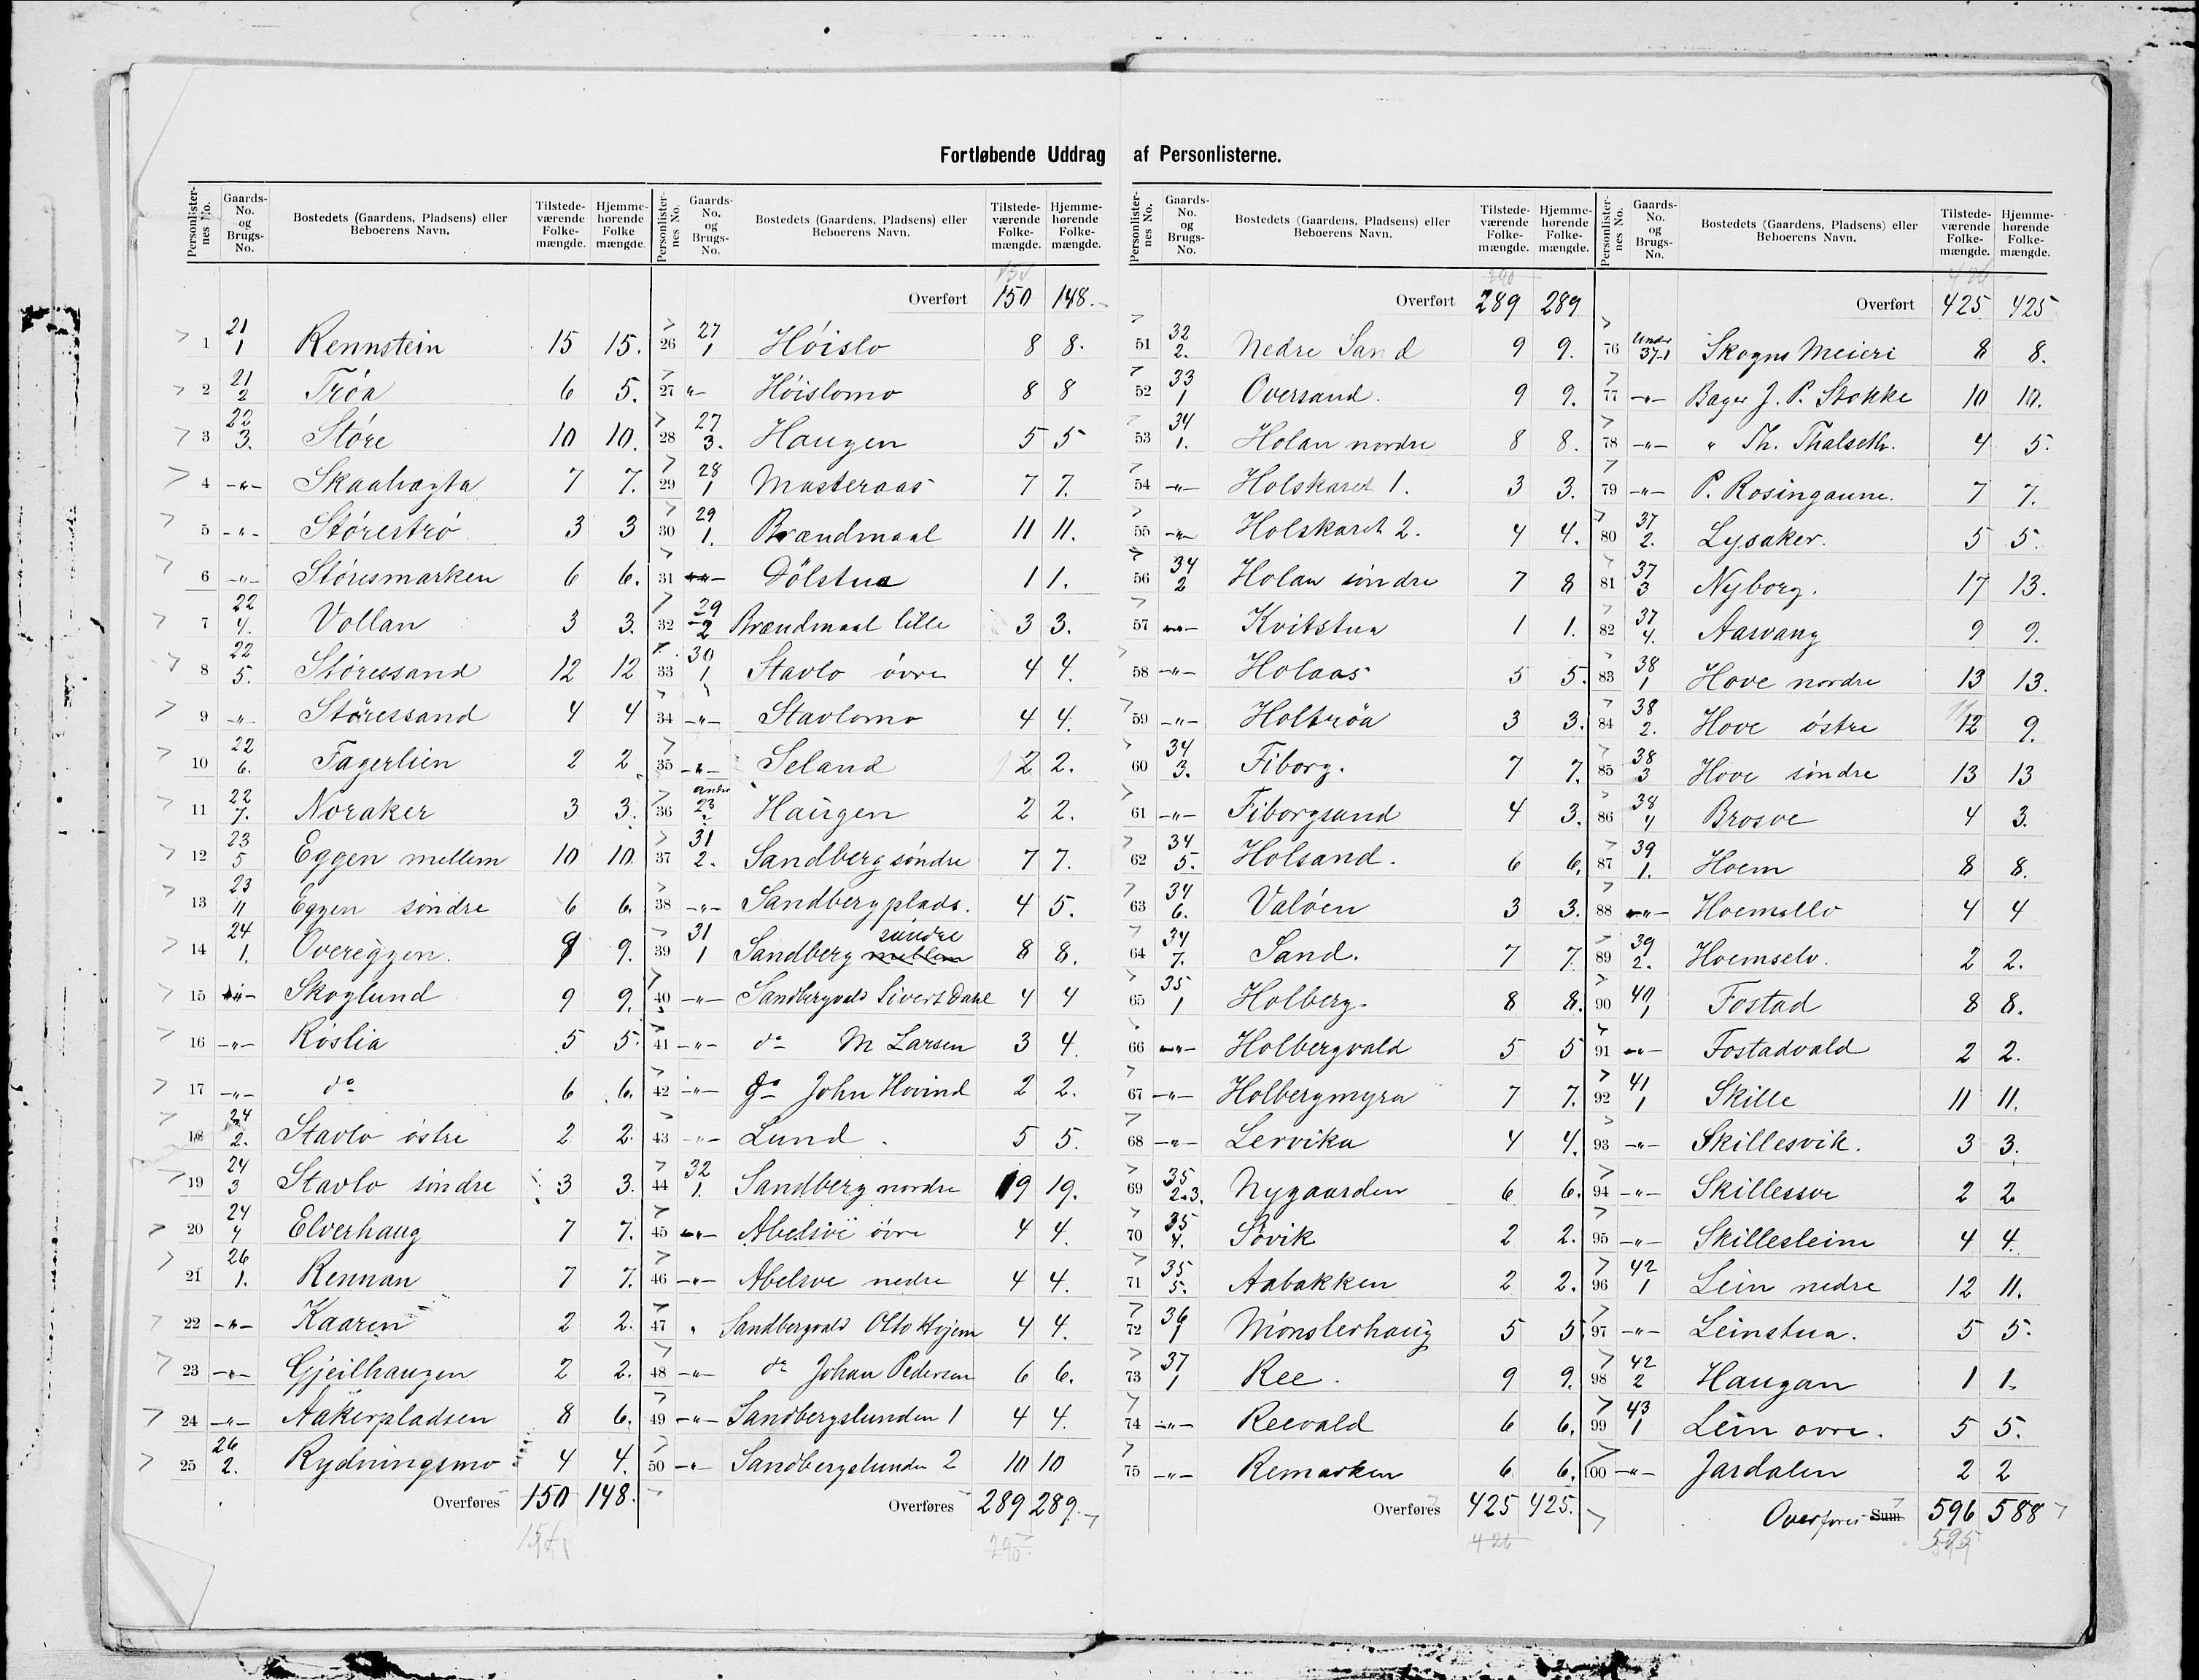 Fortløbende Uddrag af Personlisterne.
Personlisternes No. Gaards-No. og Brugs-No. Bostedets (Gaardens, Pladsens) eller Beboerens Navn. Tilstedeværende Folkemængde. Hjemmehørende Folkemængde.
1 21/1 Rennstein 15 15.
2 21/2 Trøa 6 5.
3 22/3. Støre 10 10.
4 -„- 7 7.
5 -„- Størestrø 3 3
6 -„- Støresmarken 6 6.
7 22/4. Vollan 3 3.
8 22/5. Støressand 12 12
9 -„- Støressand 4 4
10 22/6. Fagerlien 2 2
11 22/7. Noraker 3 3.
12 23/5 Eggen mellem 10 10.
13 23/11 Eggen søndre 6 6.
14 24/1. Overeggen. 9.
15 -„- Skoglund 9 9.
16 -„- Røslia 5 5.
17 -„- do 6 6.
18 24/2. Stavlo østre 2 2.
19 24/3 Stavlo søndre 3 3.
20 24/4 Elverhaug 7 7.
21 26/1. Rennan 7 7.
22 -„- Kaaren 2 2.
23 -„- Gjeilhaugen 2 2.
24 -„- Aakerpladsen 8 6.
25 26/2. Rydningsmo 4 4.
Overføres 150 148.
Personlisternes No. Gaards-No. og Brugs-No. Bostedets (Gaardens, Pladsens) eller Beboerens Navn. Tilstedeværende Folkemængde. Hjemmehørende Folkemængde.
Overført 150 148.
26 27/1 Høislo 8 8.
27 „- Høislomo 8 8
28 27/3. Haugen 5 5
29 28/1 Masteraas 7 7.
30 29/1. Brændmaal 11 11.
31 -„- Dølstua 1 1.
32 29/2 Brændmaal lille 3 3.
33 30/1 Stavlo øvre 4 4.
34 -„- Stavlomo 4 4.
35 -„- Seland 2 2.
36 23/2 Haugen 2 2.
37 31/2. Sandberg søndre 7 7.
38 -„- Sandbergplads. 4 5.
39 31/1 Sandberg mellem søndre 8 8.
40 -„- Sandbergvald Sivert Dahl 4 4
41 -„- do M Larsen 3 4.
42 -„- do John Hovind 2 2.
43 -„- Lund. 5 5.
44 32/1. Sandberg nordre 19 19.
45 -„- Abelsve øvre 4 4.
46 -„- Abelsve nedre 4 4.
47 „ Sandbergvald Otto Hojem 4 4.
48 -„- do Johan Pedersen 6 6.
49 -„- Sandbergslunden 1 4 4.
50 -„- Sandbergslunden 2 10 10
Overføres 289 289.
290
Personlisternes No. Gaards-No. og Brugs-No. Bostedets (Gaardens, Pladsens) eller Beboerens Navn. Tilstedeværende Folkemængde. Hjemmehørende Folkemængde.
290
Overført 289 289
51 32/2. Nedre Sand 9 9.
52 33/1 Oversand. 9 9.
53 34/1. Holan nordre 8 8.
54 -„- Holskaret 1. 3 3.
55 -„- Holskaret 2. 4 4.
56 34/2 Holan søndre 7 8
57 -„- Kvitstua 1 1.
58 -„- Holaas 5 5.
59 -„- Holtrøa 3 3.
60 34/3. Fiborg. 7 7.
61 -„- Fiborgsand 4 3.
62 34/5. Holsand. 6 6.
63 34/6. Valøen 3 3.
64 34/7. Sand. 7 7
65 35/1 Holberg. 8 8.
66 -„- Holbergvald 5 5
67 -„- Holbergmyra 7 7.
68 -„- Lervika 4 4.
69 35/2.3. Nygaarden 6 6.
70 35/4. Søvik 2 2.
71 35/5. Aabakken 2 2.
72 36/1 Mønsterhaug 5 5
73 37/1 Ree. 9 9.
74 -„- Reevald 6 6.
75 -„- Remarken 6 6.
Overføres 425 425.
426
Personlisternes No. Gaards-No. og Brugs-No. Bostedets (Gaardens, Pladsens) eller Beboerens Navn. Tilstedeværende Folkemængde. Hjemmehørende Folkemængde.
426
Overført 425 425
76 Under 37-1 Skogns Meieri 8 8.
77 -„- Bager J. P. Stokke 10 10.
78 -„- „ Th. Thalseth. 4 5.
79 -„- P. Rosingaune. 7 7.
80 37/2. Lysaker. 5 5.
81 37/3 Nyborg. 17 13.
82 37/4. Aasvang 9 9.
83 38/1 Hove nordre 13 13.
84 38/2. Hove østre 12 9.
85 38/3 Hove søndre 13 13
86 38/4 Brosve 4 3.
87 39/1. Hoem 8 8.
88 -„- Hoemsllo 4 4
89 39/2. Hoemselv. 2 2.
90 40/1 Fostad 8 8.
91 -„- Fostadvald 2 2.
92 41/1 Skille 11 11.
93 -„- Skillesvik. 3 3.
94 -„- Skillessve 2 2
95 -„- Skillesleim 4 4.
96 42/1 Lein nedre 12 11.
97 -„- Leinstua. 5 5.
98 42/2 Haugan 1 1.
99 43/1 Lein øvre. 5 5.
100 -„- Jardalen 2 2
Overføres Sum 596 588
595